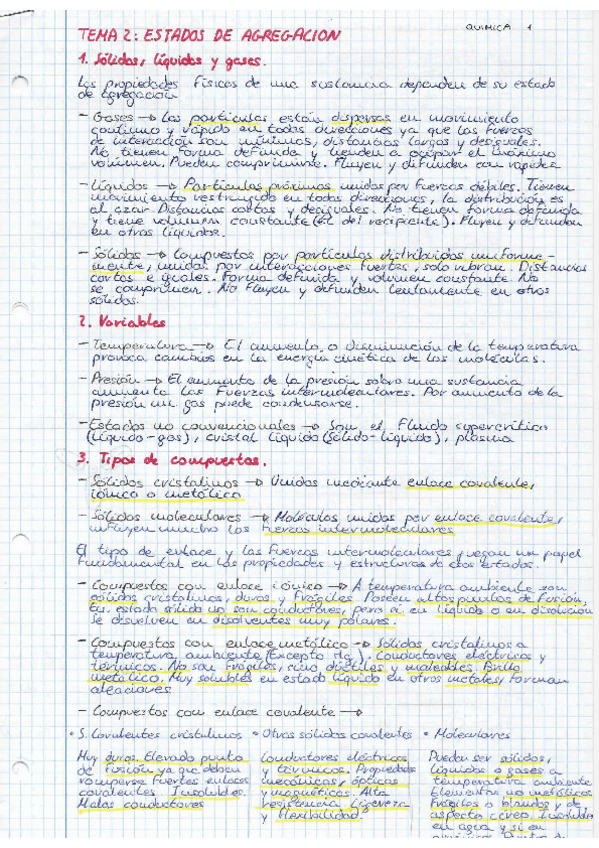 QUIMICA 1
TEMA 2: ESTADOS DE AGREGACION
1. Sólidos, líquidos y gases.
Las propiedades físicas de una sustancia dependen de su estado
de agregación
- Gases → Las partículas están dispersas en movimiento
continuo y rápido en todas direcciones ya que las fuerzas
de interacción son mínimas, distancias largas y desiguales.
No tienen forma definida y tienden a ocupar el máximo
volúmen. Pueden comprimirse. Fluyen y difunden con rapidez
- Líquidos → Partículas próximas unidas por fuerzas débiles. Tienen
movimiento restringido en todas direcciones, la distribución es
al azar. Distancias cortas y desiguales. No tienen forma definida
y tiene volumen constante (el del recipiente). Fluyen y difunden
en otros líquidos.
- Sólidos → Compuestos por partículas distribuidas uniforme-
mente, unidas por interacciones fuertes, solo vibran. Distancias
cortas e iguales. forma definida y volumen constante. No
se comprimen. No fluyen y difunden lentamente en otros
sólidos.
2. Variables
- Temperatura → El aumento o disminución de la temperatura
provoca cambios en la energía cinética de las moléculas.
- Presión → El aumento de la presión sobre una sustancia
aumenta las fuerzas intermoleculares. Por aumento de la
presión un gas puede condensarse.
- Estados no convencionales → Son el, Fluido supercrítico
(líquido-gas), cristal líquido (sólido-líquido), plasma
3. Tipos de compuestos.
- Sólidos cristalinos → Unidos mediante enlace covalente,
iónico o metálico
- Sólidos moleculares → Moléculas unidas por enlace covalente,
influyen mucho las fuerzas intermoleculares
El tipo de enlace y las fuerzas intermoleculares juegan un papel
fundamental en las propiedades y estructuras de esos estados.
- Compuestos con enlace iónico → A temperatura ambiente son
sólidos cristalinos, duros y frágiles. Poseen altos puntos de fusión,
En estado sólido no son conductores, pero si en líquido o en disolución
Se disuelven en disolventes muy polares.
- Compuestos con enlace metálico → Sólidos cristalinos a
temperatura ambiente (Excepto Hg). Conductores eléctricos y
térmicos. No son frágiles, sino dúctiles y maleables. Brillo
metálico. Muy solubles en estado líquido en otros metales, forman
aleaciones
- Compuestos con enlace covalente →
• S. Covalentes cristalinos • Otros sólidos covalentes • Moleculares
Muy duros. Elevado punto
de fusión ya que deben
romperse fuertes enlaces
covalentes. Insolubles.
Malos conductores
Conductores eléctricos
y térmicos. Propiedades
mecánicas, ópticas
y magnéticas. Alta
resistencia, ligereza
y flexibilidad
Pueden ser sólidos,
líquidos o gases a
temperatura ambiente
Elementos no metálicos
Frágiles o blandos y de
aspecto céreo. Insolubles
en agua y si en